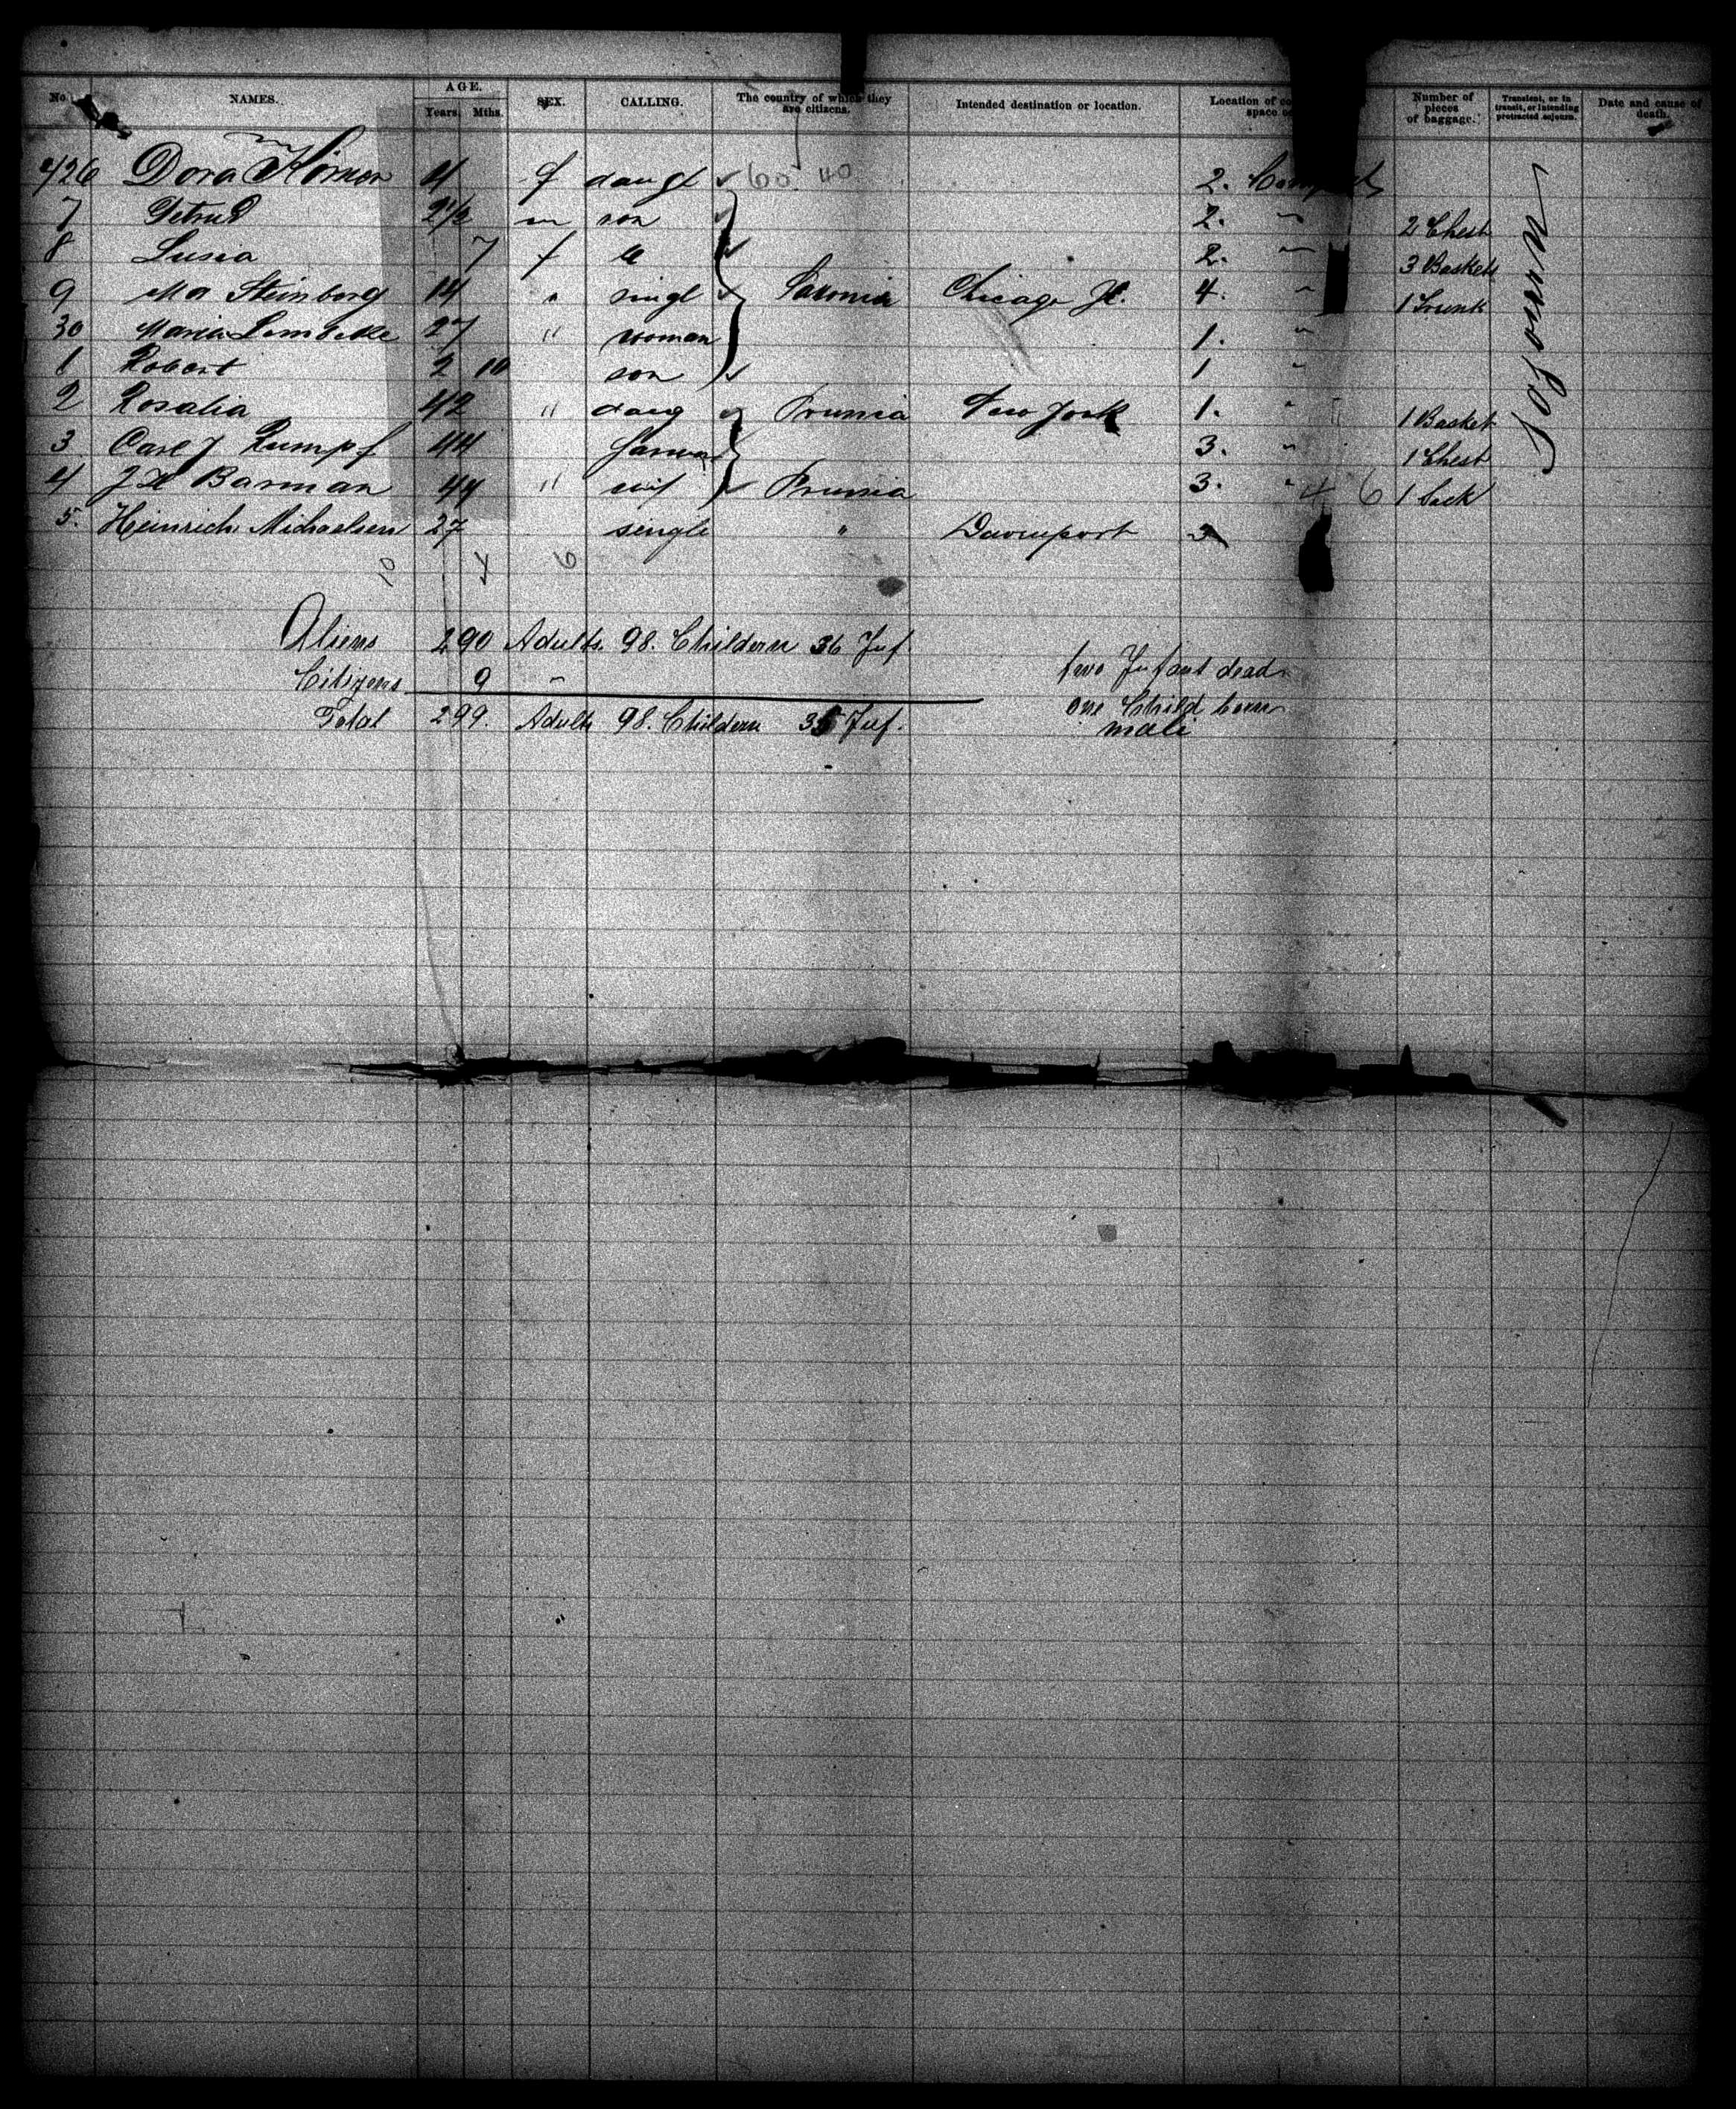 No. NAMES. AGE. Years. Mths. SEX. CALLING. The country of which they are citizens. Intended destination or location. Location of space Number of pieces of baggage. Transient, or in transit, or intending protracted sojourn. Date and cause of death.
426 Dora 4 f daugt 60 40 2.
7 2 1/2 m son 2. " 2 Chest
8 Lusia 7 f 2. " 3 Baskets
9 Steinberg 14 " singl Saxonia Chicago Jl. 4. " 1 Trunk
30 Maria 27 " woman 1. "
1 Robert 2 10 son 1 "
2 Rosalia 42 " daug Prussia New York 1. " 1 Basket
3 Carl J Rumpf 44 3. " 1 Chest
4 Barman 44 " wif Prussia 3. " 4 6 1 Sack
5. Heinrich Michaelsen 27 single " Davenport 3
Sojourn
10 4 6
Aliens 290 Adults. 98. Childern 36 Inf.
two Infant dead
Citizens 9 "
one Child born
Total 299. Adults 98. Childern Inf.
male